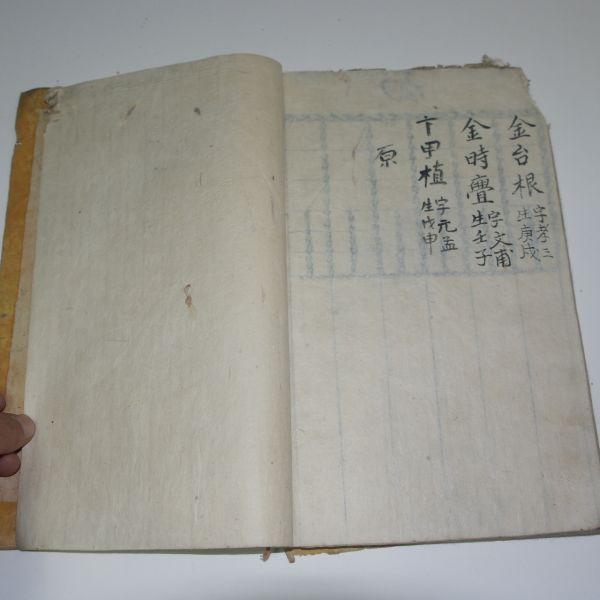 金台根 字孝三 生庚戌
金時亹 字文甫 生壬子
卞甲植 字元孟 生戊申
原